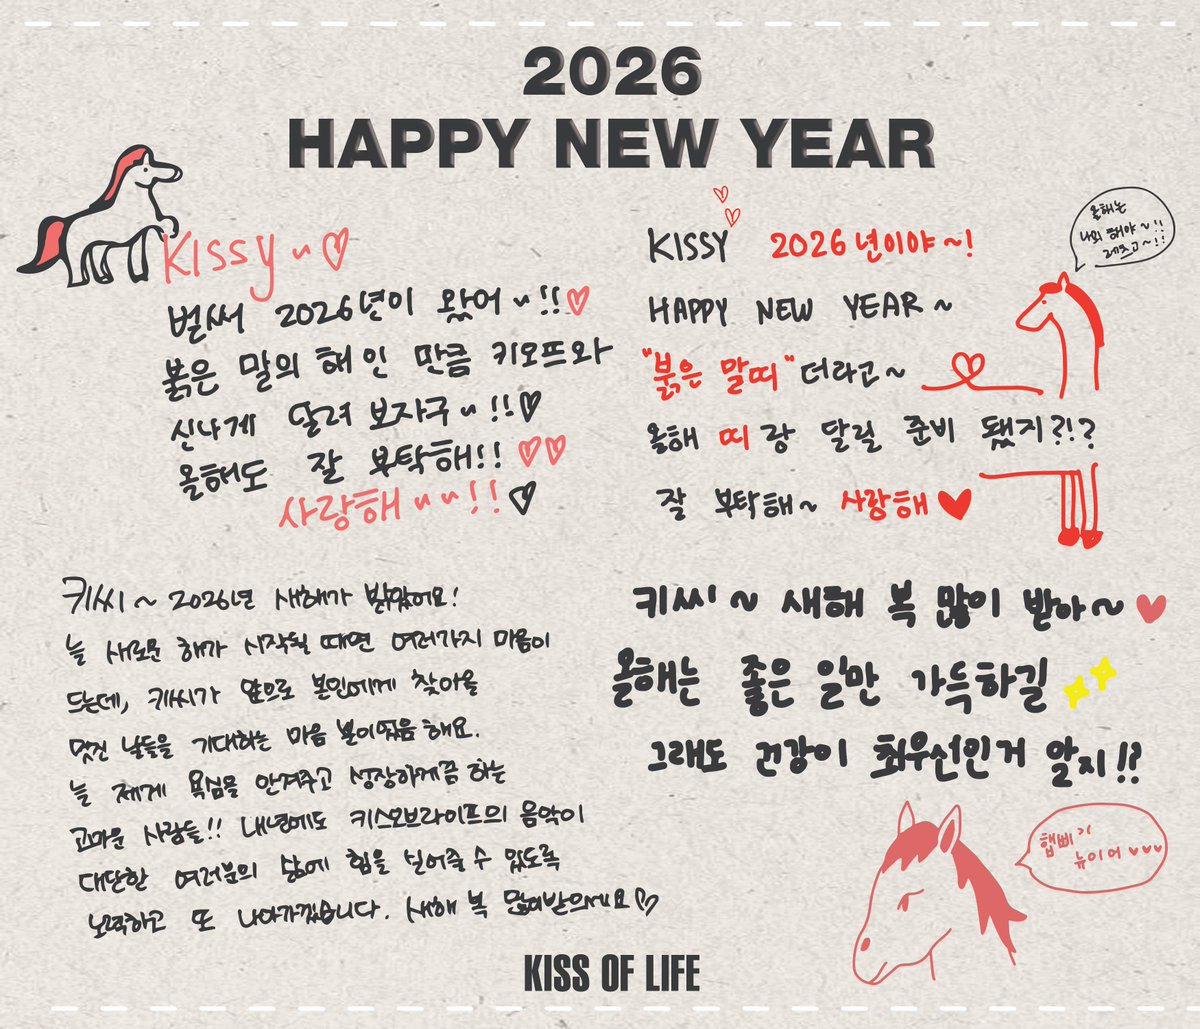 2026
HAPPY NEW YEAR
KISSY ~ ♡
벌써 2026년이 왔어~!!♡
붉은 말의 해인 만큼 키오프와
신나게 달려 보자구~!!♡
올해도 잘 부탁해!! ♡♡
사랑해~~!!♡
올해는
나의 해야~!!
레츠고~!!
KISSY 2026년이야~!
HAPPY NEW YEAR~
"붉은 말띠"더라고~
올해 띠랑 달릴 준비 됐지?!?
잘 부탁해~ 사랑해♥
키씨~ 2026년 새해가 밝았어요!
늘 새로운 해가 시작될 때면 여러가지 마음이
드는데, 키씨가 앞으로 본인에게 찾아올
멋진 날들을 기대하는 마음 뿐이었음 해요.
늘 제게 욕심을 안겨주고 성장하게끔 하는
고마운 사람들!! 내년에도 키스오브라이프의 음악이
대단한 여러분의 삶에 힘을 실어줄 수 있도록
노력하고 또 나아가겠습니다. 새해 복 많이받으세요♡
키씨~ 새해 복 많이 받아~♥
올해는 좋은 일만 가득하길
그래도 건강이 최우선인거 알지!?
햅삐
뉴이어 ♥♥♥
KISS OF LIFE